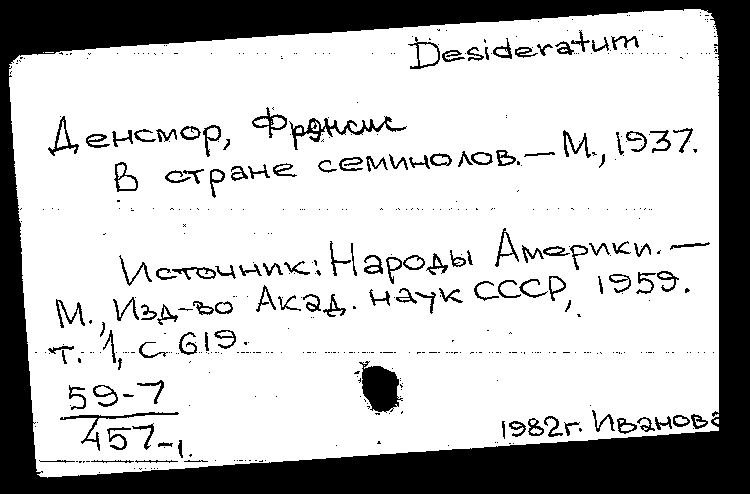 Desideratum
Денсмор, Фрэнсис
В стране семинолов. — М., 1937.
Источник: Народы Америки. —
М., Изд-во Акад. наук СССР, 1959.
т. 1, с. 619.
59-7
457-1.
1982г. Иванова